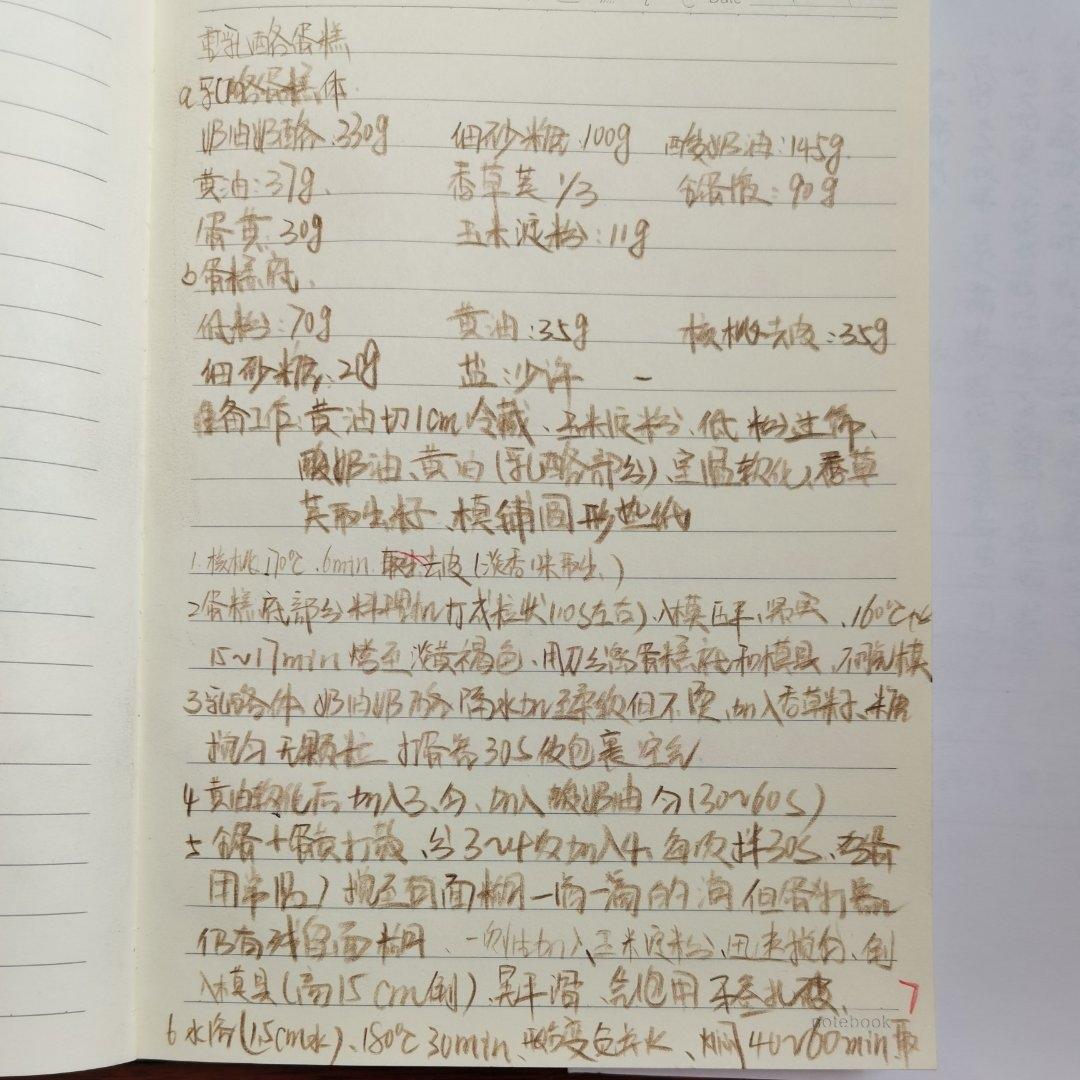 Date
重乳酪蛋糕
a 乳酪蛋糕体
奶油奶酪:330g 细砂糖:100g 酸奶油:145g
黄油:37g. 香草荚 1/3 全蛋液:90g
蛋黄:30g 玉米淀粉:11g
b 蛋糕底.
低粉:70g 黄油:35g 核桃去皮:35g
细砂糖:20g 盐:少许
准备工作:黄油切1cm冷藏、玉米淀粉、低粉过筛、
酸奶油、黄油(乳酪部分)、室温软化、香草
荚取生籽、模铺圆形垫纸
1.核桃170℃.6min 去皮(淡香味取出)
2蛋糕底部分料理机打成粒状(10s左右)入模压平、紧实、160℃
15~17min 烤至淡黄褐色、用刀分离蛋糕底和模具、不脱模
3乳酪体 奶油奶酪隔水加至柔软但不烫、加入香草籽、糖
搅匀无颗粒 打蛋器30S 使包裹空气
4 黄油软化后加入3、匀、加入酸奶油匀(30~60s)
5 全蛋+蛋黄打散、分3~4次加入4、每次拌30S、
搅至面糊一滴一滴的滴但蛋打器
仍有残留面糊、一次性加入玉米淀粉、迅速搅匀、倒
入模具(高15cm倒)、晃平滑、气泡用 扎破、
7
notebook
6 水浴(1.5cm水)、180℃ 30min、 变色 水、 焖40~60min取